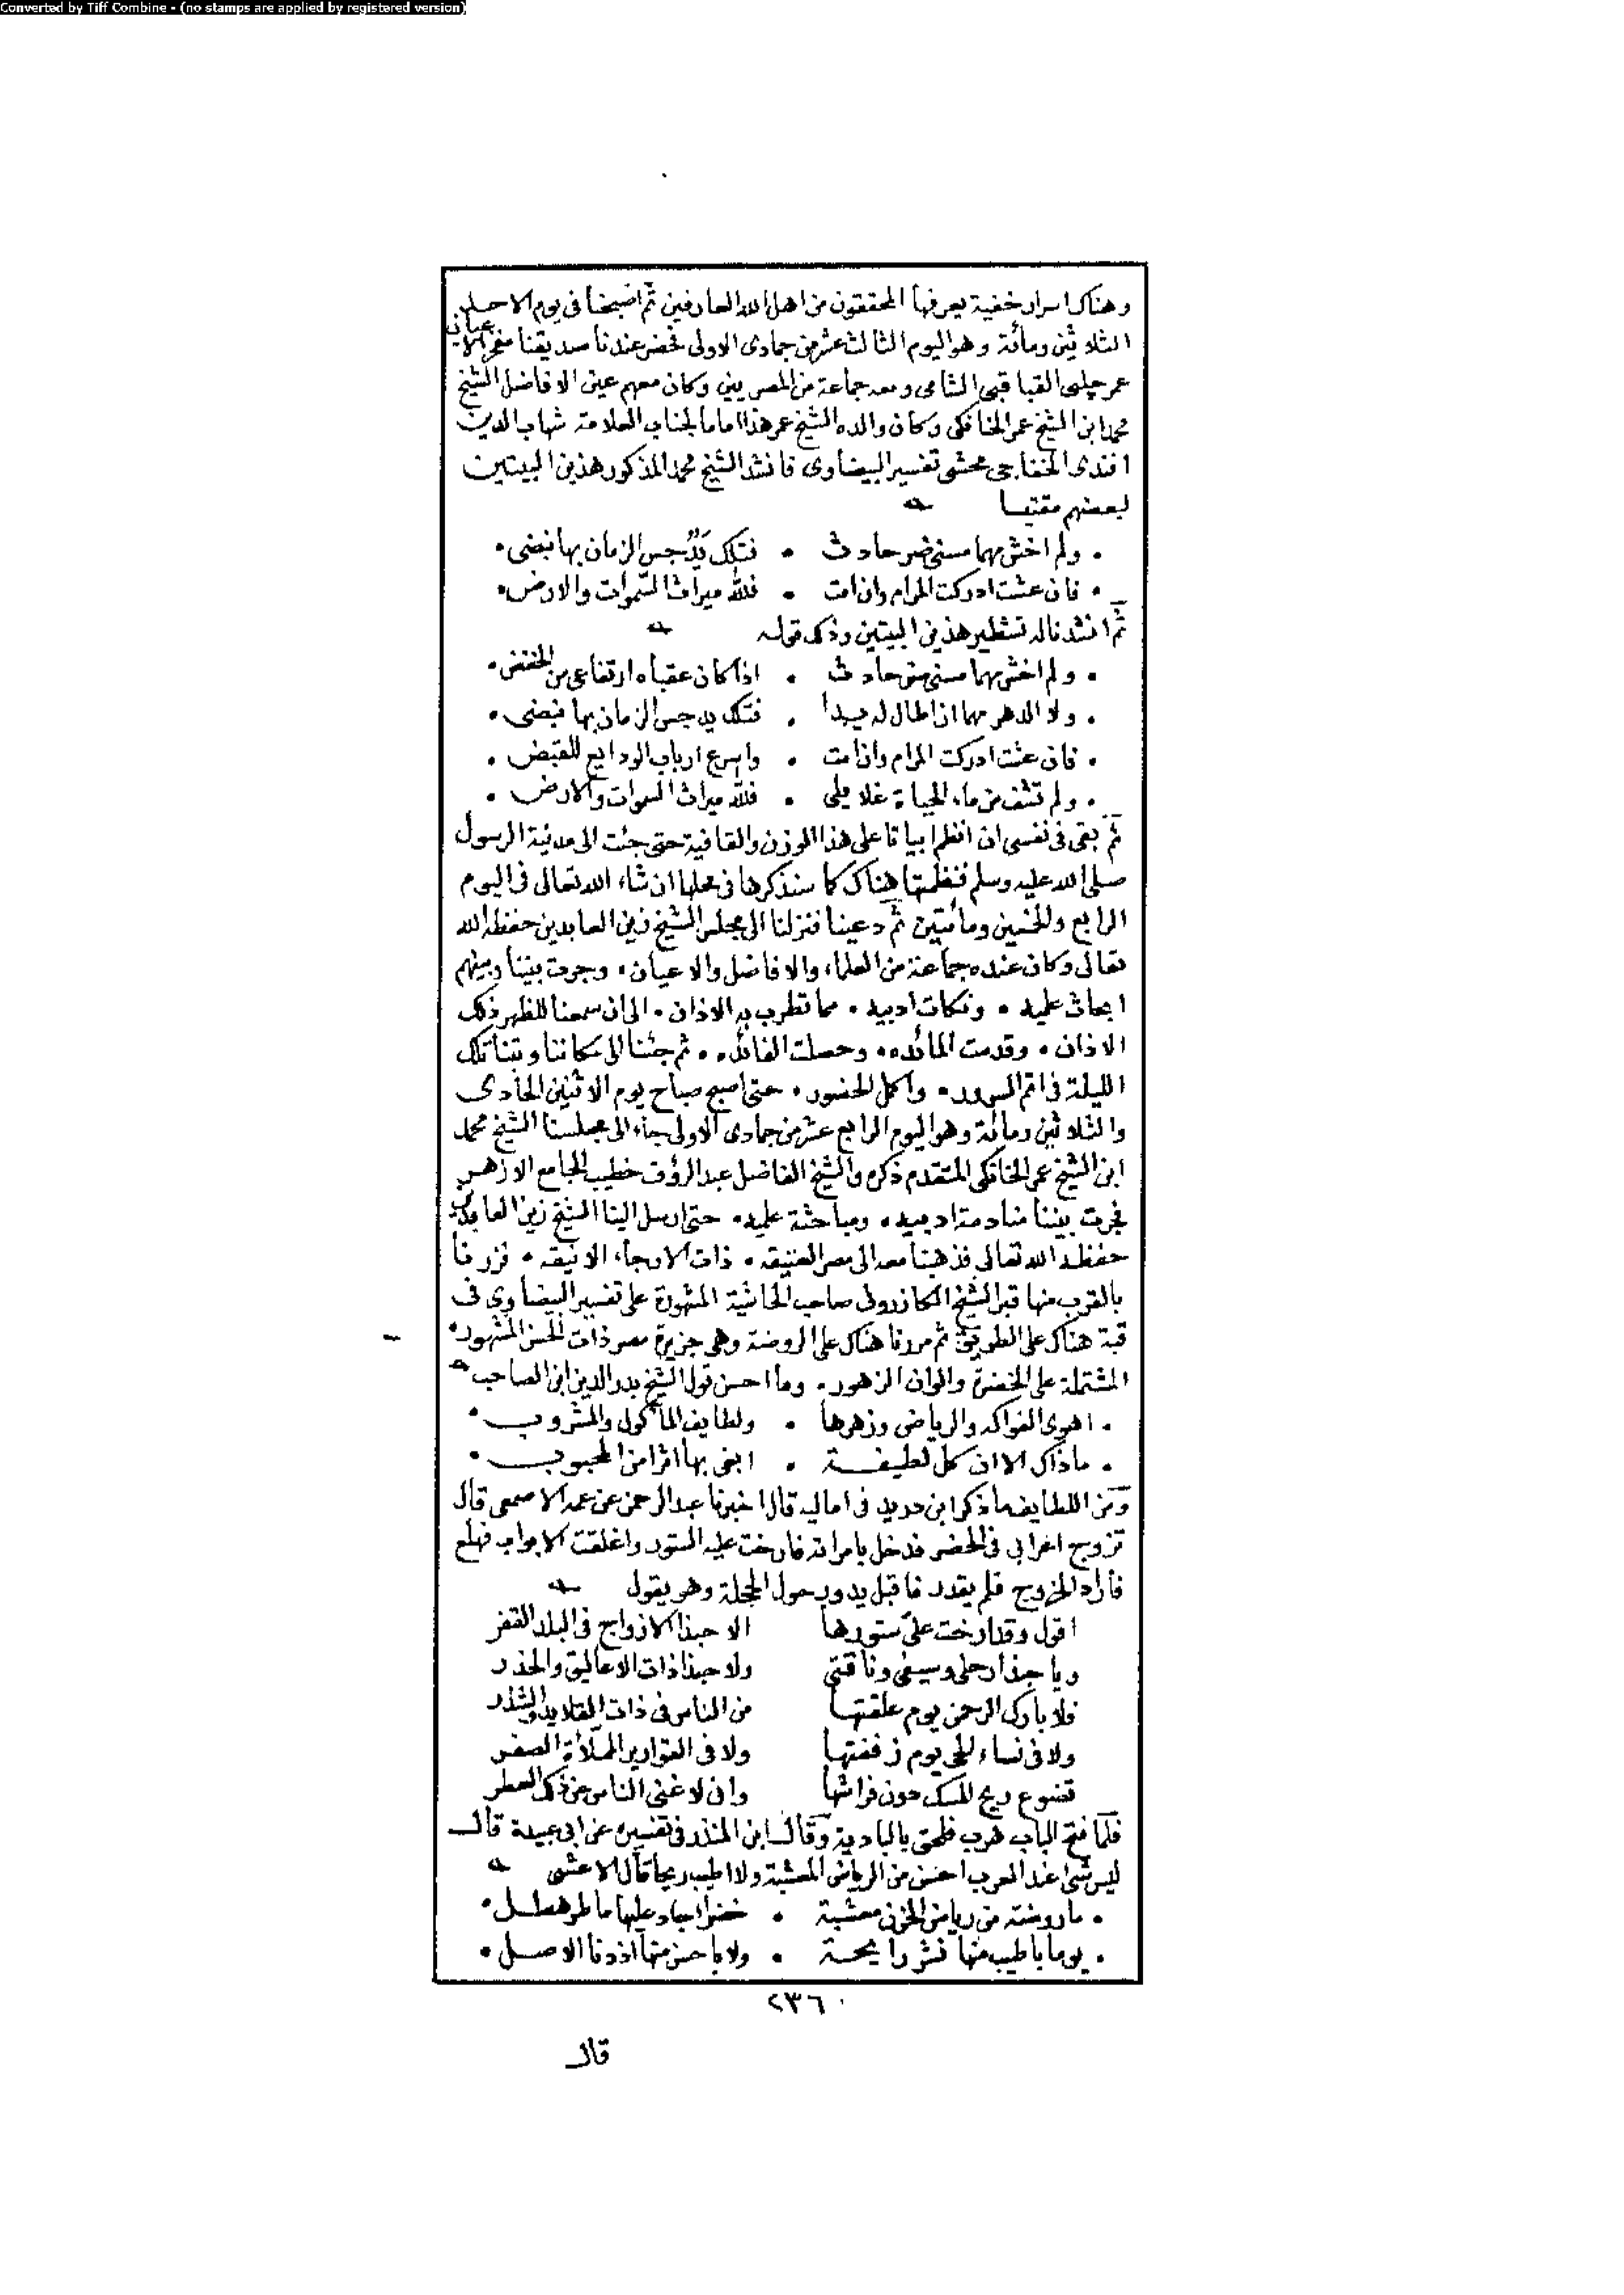 Converted by Tiff Combine - (no stamps are applied by registered version)
وهناك اسرار خفية يعرفها المحققون من اهل الله العارفين ثم اصبحنا فى يوم الاحد
الثلاثين ومائة وهو اليوم الثالث عشر من جمادى الاولى فحضر عندنا صديقنا فخر الاعيان
عمر چلبى القباقبى الشامى ومعه جماعة من المصريين وكان معهم عين الافاضل الشيخ
محمد ابن الشيخ عمر الخانكى وكان والده الشيخ عمر هذا اماما لجناب العلامة شهاب الدين
افندى الخفاجى محشى تفسير البيضاوى فانشد الشيخ محمد المذكور هذين البيتين
لبعضهم مقتبسا
ولم اخش مهما مسنى ضر حادث • فتلك يد جس الزمان بها نبضى •
فان عشت ادركت المرام وان امت • فلله ميراث السموات والارض •
ثم انشدنا له تشطير هذين البيتين وذلك قوله
ولم اخش مهما مسنى ضر حادث • اذا كان عقباه ارتفاعى من الخفض •
ولا الدهر مهما اذا طال له يدا • فتلك يد جس الزمان بها نبضى •
فان عشت ادركت المرام وان امت • واسرع ارباب الودايع للقبض •
ولم تشف من ماء الحياة غلايلى • فلله ميراث السموات والارض •
ثم بقى فى نفسى ان انظم ابياتا على هذا الوزن والقافية حتى جئت الى مدينة الرسول
صلى الله عليه وسلم فنظمتها هناك كما سنذكرها فى محلها ان شاء الله تعالى فى اليوم
الرابع والخمسين ومائتين ثم دعينا فنزلنا الى مجلس الشيخ زين العابدين حفظه الله
تعالى وكان عنده جماعة من العلماء والافاضل والاعيان • وجرت بيننا وبينهم
ابحاث علميه • ونكات ادبيه • مما تطرب به الاذان • الى ان سمعنا للظهر ذلك
الاذان • وقدمت المائده • وحصلت الفائده • ثم جئنا الى مكاننا وبتنا تلك
الليلة فى اتم السرور • واكمل الحضور • حتى اصبح صباح يوم الاثنين الحادى
والثلاثين ومائة وهو اليوم الرابع عشر من جمادى الاولى جاء الى مجلسنا الشيخ محمد
ابن الشيخ عمر الخانكى المتقدم ذكره والشيخ الفاضل عبد الرؤف خطيب الجامع الازهر
فجرت بيننا منادمة ادبيه • ومباحثة علميه • حتى ارسل الينا الشيخ زين العابدين
حفظه الله تعالى فذهبنا معه الى مصر العتيقه • ذات الارجاء الانيقه • فزرنا
بالقرب منها قبر الشيخ الكازرونى صاحب الحاشية المشهورة على تفسير البيضاوى فى
قبة هناك على الطريق ثم مررنا هناك على الروضة وهى جزيرة مصر ذات الحسن المشهور •
المشتملة على الخضرة والوان الزهور • وما احسن قول الشيخ بدر الدين ابن الصاحب
• اهوى الفواكه والرياض وزهرها • ولطايف المأكول والمشروب •
• ما ذاك الا ان كل لطيفة • ابغى بها اثرا من المحبوب •
ومن اللطايف ما ذكر ابن دريد فى اماليه قال اخبرنا عبد الرحمن عن عمه الاصمعى قال
تزوج اعرابى فى الحضر فدخل بامراته فارخت عليه الستور واغلقت الابواب فهلع
فاراد الخروج فلم يقدر فاقبل يدور حول الحجلة وهو يقول
اقول وقد ارخت علىّ ستورها الا حبذا الازواج فى البلد القفر
ويا حبذا رحلى وسيفى وناقتى ولا حبذا ذات الاعاليق والخدر
فلا بارك الرحمن يوم علقتها من الناس فى ذات القلايد والشذر
ولا فى نساء الحى يوم زففتها ولا فى القوارير الملآة الصفر
تضوع ريح المسك دون فراشها وانى لاغنى الناس عن ذلك العطر
فلما فتح الباب هرب فلحق بالبادية وقال ابن المنذر فى تفسيره عن ابى عبيدة قال
ليس شىء عند العرب احسن من الرياض المعشبة ولا اطيب ريحا قال الاعشى
• ما روضة من رياض الحزن معشبة • خضراء جاد عليها ماطر هطل •
• يوما باطيب منها نشر رايحة • ولا باحسن منها اذ دنا الاصل •
٢٣٦
قال